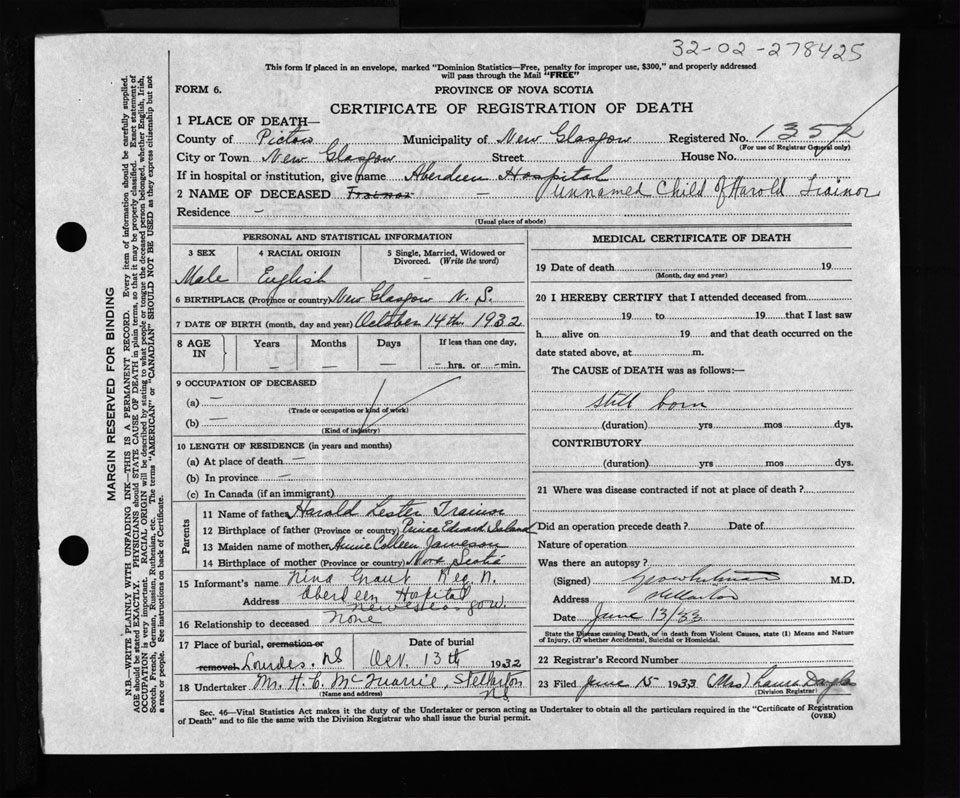 32-02-278425
This form if placed in an envelope, marked "Dominion Statistics—Free, penalty for improper use, $300," and properly addressed
will pass through the Mail "FREE"
FORM 6.
PROVINCE OF NOVA SCOTIA
CERTIFICATE OF REGISTRATION OF DEATH
1 PLACE OF DEATH—
County of Pictou Municipality of New Glasgow Registered No. 1357
(For use of Registrar General only)
City or Town New Glasgow Street House No.
If in hospital or institution, give name Aberdeen Hospital
2 NAME OF DECEASED Trainor — unnamed Child of Harold Trainor
Residence —
(Usual place of abode)
PERSONAL AND STATISTICAL INFORMATION
3 SEX 4 RACIAL ORIGIN 5 Single, Married, Widowed or
Divorced. (Write the word)
Male English —
6 BIRTHPLACE (Province or country) New Glasgow N. S.
7 DATE OF BIRTH (month, day and year) October 14th 1932
8 AGE IN Years Months Days If less than one day,
— — — — hrs. or — min.
9 OCCUPATION OF DECEASED
(a) —
(Trade or occupation or kind of work)
(b) —
(Kind of industry)
10 LENGTH OF RESIDENCE (in years and months)
(a) At place of death —
(b) In province —
(c) In Canada (if an immigrant)
Parents
11 Name of father Harold Lester Trainor
12 Birthplace of father (Province or country) Prince Edward Island
13 Maiden name of mother Annie Colleen Jameson
14 Birthplace of mother (Province or country) Nova Scotia
15 Informant's name Nina Grant Reg. N.
Address Aberdeen Hospital
New Glasgow.
16 Relationship to deceased None
17 Place of burial cremation or Date of burial
removal Lourdes. NS Oct. 13th 1932
18 Undertaker Mr. H. C. McQuarrie, Stellarton
NS
(Name and address)
MEDICAL CERTIFICATE OF DEATH
19 Date of death 19
(Month, day and year)
20 I HEREBY CERTIFY that I attended deceased from
19 to 19 that I last saw
h alive on 19 and that death occurred on the
date stated above, at m.
The CAUSE of DEATH was as follows:—
Still born
(duration) yrs mos dys.
CONTRIBUTORY
(duration) yrs mos dys.
21 Where was disease contracted if not at place of death?
Did an operation precede death? Date of
Nature of operation
Was there an autopsy?
(Signed) M.D.
Address Stellarton
Date June 13/33
State the Disease causing Death, or in death from Violent Causes, state (1) Means and Nature
of Injury, (2) whether Accidental, Suicidal or Homicidal.
22 Registrar's Record Number
23 Filed June 15 1933 (Mrs) Laura Douglas
(Division Registrar)
Sec. 46—Vital Statistics Act makes it the duty of the Undertaker or person acting as Undertaker to obtain all the particulars required in the "Certificate of Registration
of Death" and to file the same with the Division Registrar who shall issue the burial permit.
(OVER)
MARGIN RESERVED FOR BINDING
N.B.—WRITE PLAINLY WITH UNFADING INK—THIS IS A PERMANENT RECORD. Every item of information should be carefully supplied.
AGE should be stated EXACTLY. PHYSICIANS should STATE CAUSE OF DEATH in plain terms, so that it may be properly classified. Exact statement of
OCCUPATION is very important. RACIAL ORIGIN will be described by stating to what people or tongue the deceased person belonged, whether English, Irish,
Scotch, French, German, Russian, Ruthenian, etc. The terms "AMERICAN" or "CANADIAN" SHOULD NOT BE USED as they express citizenship but not
a race or people. See instructions on back of Certificate.